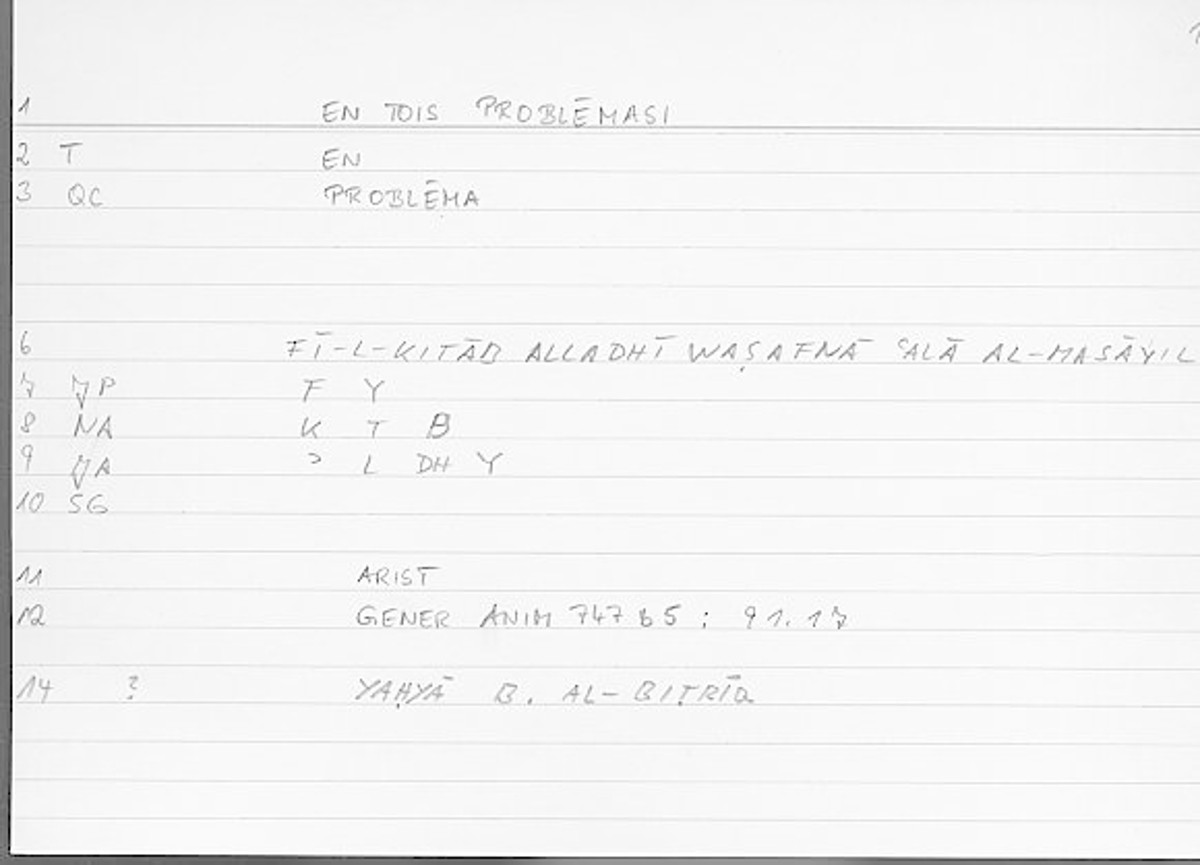 1 EN TOIS PROBLĒMASI
2 T EN
3 QC PROBLĒMA
6 FĪ-L-KITĀB ALLADHĪ WAṢAFNĀ ʿALĀ AL-MASĀYIL
7 JP F Y
8 NA K T B
9 JA ʾ L DH Y
10 SG
11 ARIST
12 GENER ANIM 747 b 5 ; 91.17
14 ? YAḤYĀ B. AL-BIṬRĪQ